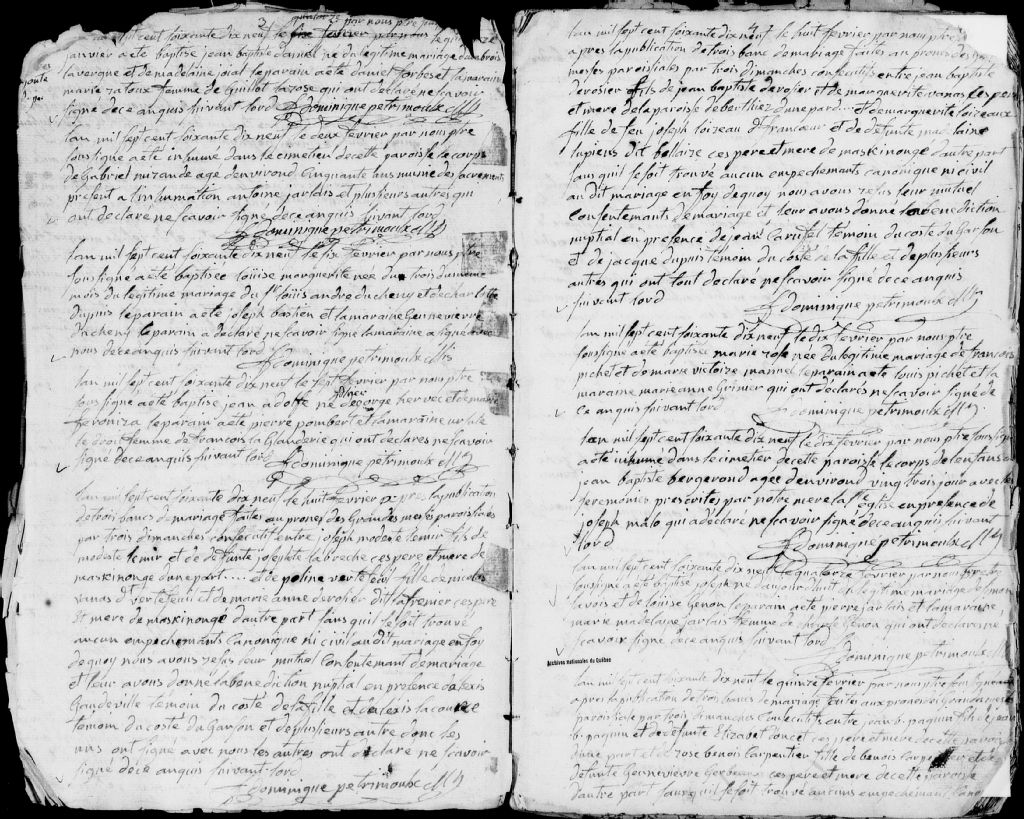 2
janvier a eté baptisé jean baptiste daniel né du legitime mariage
lavergne et de madelaine joial le parain a eté daniel forbes et la maraine
marie femme de Guillot larose qui ont declare ne scavoir
signé de ce anquis suivant lord Dominique petrimoulx
lan mil sept cent soixante dix neuf le deux fevrier par nous ptre
soussigné a eté inhumé dans le cimetier de cette paroisse le corps
de Gabriel age denvirond Cinquante ans munie des sacrements
présent a linhumation antoine jarlais et plusieurs autres qui
ont declaré ne scavoir signe de ce anquis suivant lord
Dominique petrimoulx
lan mil sept cent soixante dix neuf le six fevrier par nous ptre
soussigné a eté baptisee loüise marguerite née du trois du meme
mois du legitime mariage du Sr loüis andre ducheny et de charlotte
dupuis le parain a eté joseph bastien et la maraine Genevieve
ducheny le parain a déclaré ne scavoir signé la maraine a signé avec
nous de ce anquis suivant lord
Dominique petrimoulx
lan mil sept cent soixante dix neuf le sept fevrier par nous ptre
sous signé a eté baptisé jean adolfe né de George hervec et de marie
le parain a eté pierre pombert et la maraine ursule
le droit femme de francois la Glanderie qui ont declarés ne scavoir
signé de ce anquis suivant lord Dominique petrimoulx
lan mil sept cent soixante dix neuf le huit fevrier apres la publication
de trois bancs de mariage faites au prones des Grandes messes paroissiales
par trois dimanches consécutif entre joseph modeste lemir fils de
modeste lemir et de défunte josephte labreche ces pere et mere de
maskinonge dune part .... et de poline vertefeüil fille de nicolas
vanas dt vertefeuil et de marie anne derosier dit lafremer ces pere
et mere de maskinongé dautre part sans quil se soit trouvé
aucun empechemants Canonique ni civil au dit mariage en foy
de quoy nous avons resus leur mutuel Consentemant de mariage
et leur avons donné la benediction nuptial en presence dalexis
Gaudeville temoin du costé de la fille et dalexis lacource
temoin du costé du Garson et de plusieurs autre donc les
uns ont signe avec nous les autres ont declaré ne scavoir
signé de ce anquis suivant lord
Dominique petrimoulx
lan mil sept cent soixante dix neuf le huit fevrier par nous ptre
apres la publication de trois banc de mariage faites au prones des
messes paroissiales par trois dimanches consécutifs entre jean baptiste
derosier fils de jean baptiste derosier et de marguerite vanas ces pere
et mere de la paroisse de berthier dune pard ... et de marguerite loizeaux
fille de feu joseph loizeau dt francoeur et de defunte madelaine
lupiens dit bellaire ces pere et mere de maskinonge dautre part
sans quil se soit trouvé aucun empechemants canonique ni civil
au dit mariage en foy de quoy nous avons resus leur mutuel
Consentemants de mariage et leur avons donné la benediction
nuptial en presence de jean Caristel témoin du costé du Garson
et de jacque dupuis témoin du costé de la fille et de plusieurs
autres qui ont tout declaré ne scavoir signé de ce anquis
suivant lord
Dominique petrimoulx
lan mil sept cent soixante dix neuf le dix fevrier par nous ptre
soussigné a eté baptisée marie rose née du legitime mariage de francois
pichet et de marie victoire le parain a eté louis pichet et la
maraine marieanne Grinier qui ont déclarés ne scavoir signé de
ce anquis suivant lord Dominique petrimoulx
lan mil sept cent soixante dix neuf le dix fevrier par nous ptre soussigné
a eté inhumé dans le cimetier de cette paroisse le corps de lenfans de
jean baptiste bergerond agée denvirond ving trois jour avec les
ceremonies prescrites par notre mere la ste église en presence de
joseph malo qui a declaré ne scavoir signé de ce anquis suivant
lord
Dominique petrimoulx
lan mil sept cent soixante dix neuf le quatorze fevrier par nous ptre
soussigné a eté baptisé joseph né daujourdhuit du legitime mariage de simon
lavois et de loüise Genon le parain a eté pierre jarlais et la maraine
marie madelaine jarlais femme de joseph Genon qui ont declaré ne
scavoir signé de ce anquis suivant lord
Dominique petrimoulx
Archives nationales du Québec
lan mil sept cent soixante dix neuf le quinze fevrier par nous ptre soussigné
apres la publication de trois bancs de mariage faites aux prones des Grandes messes
paroissiale par trois dimanches Consecutifs entre jean b. paquin fils de jean
b. paquin et de défunte Elizabet ces pere et mere de cette paroisse
dune part et de rose benois Carpentier fille de benois Carpentier et de
défunte Gennevieve Gerbeau ces pere et mere de cette paroisse
dautre part sans quil se soit trouvé aucuns empechemant